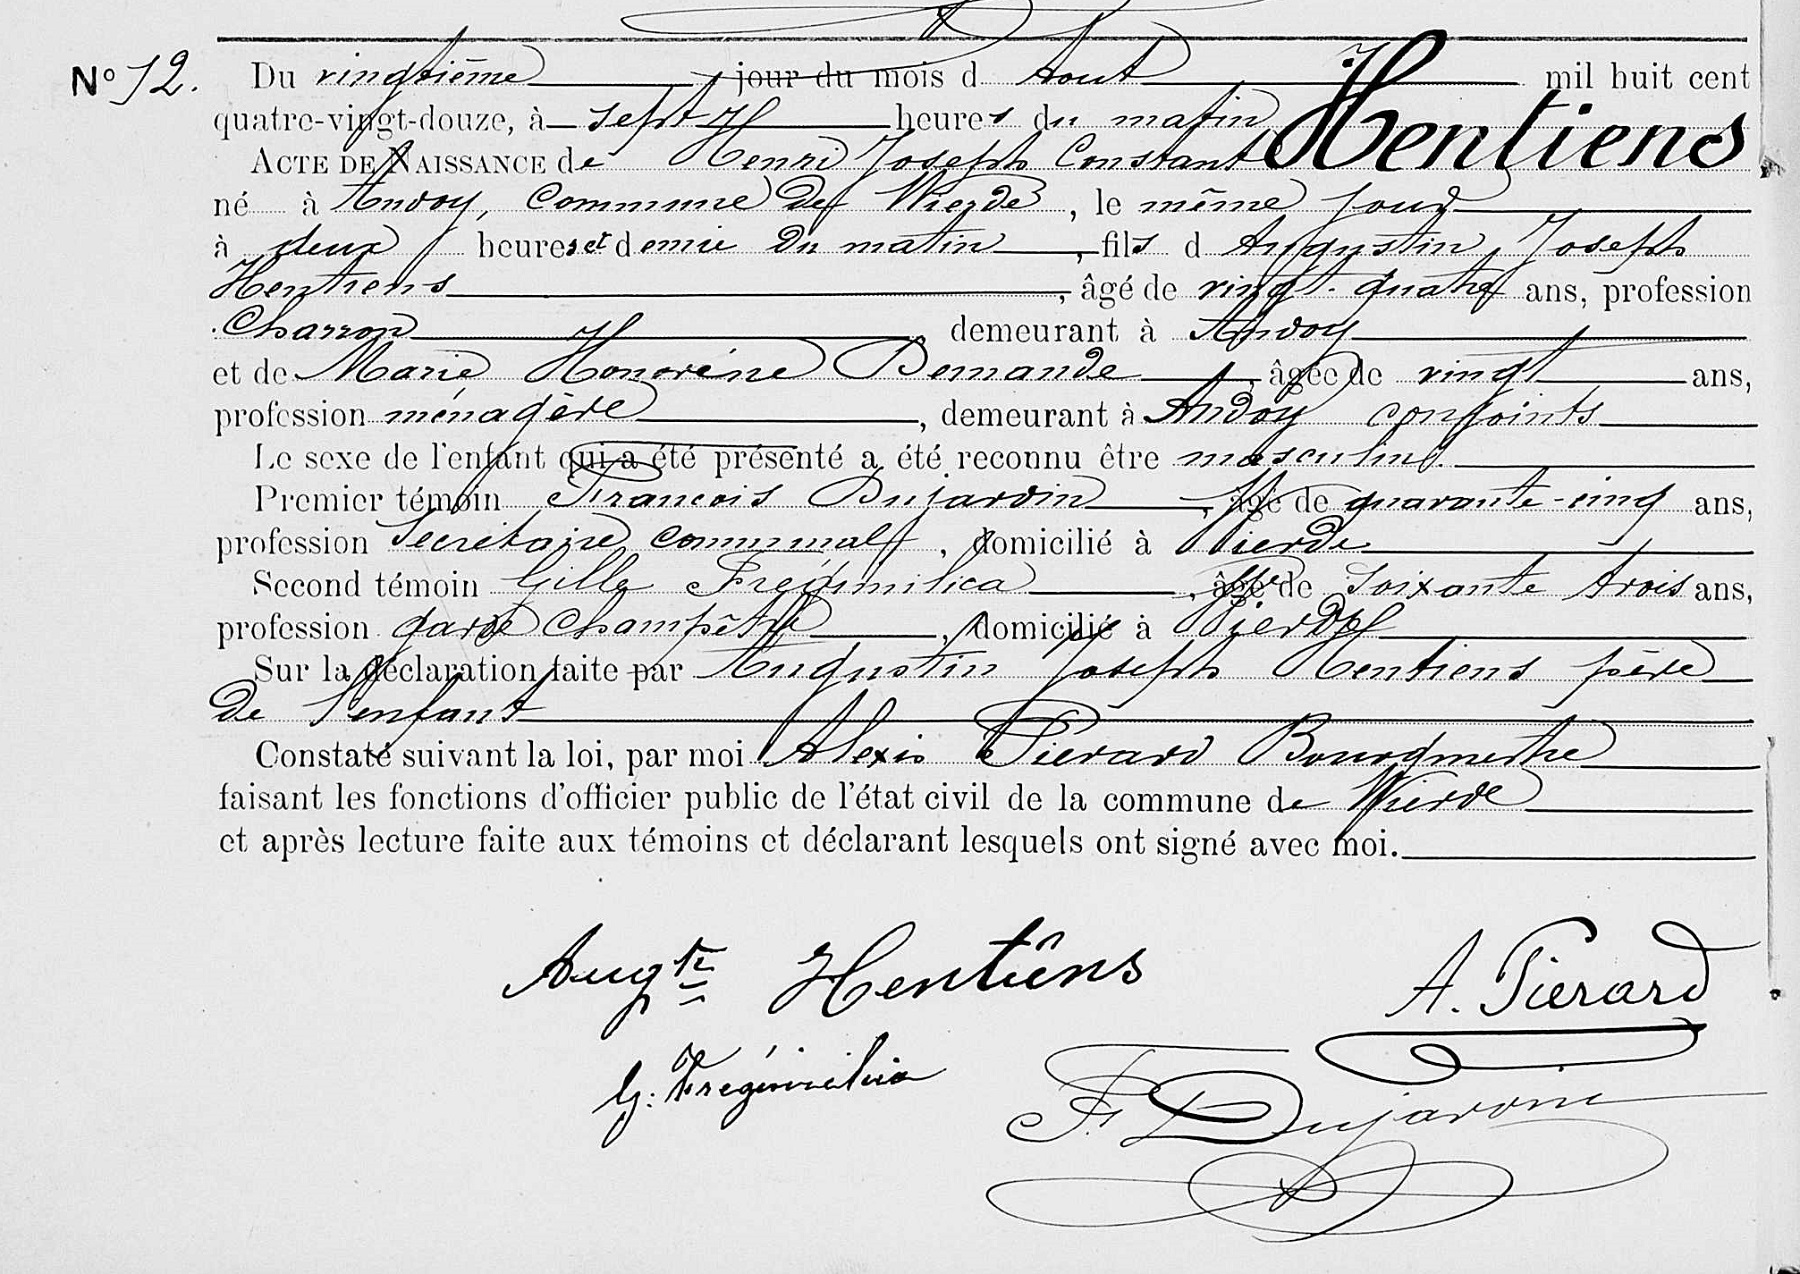 N° 12. Du vingtième jour du mois d Aout mil huit cent
quatre-vingt-douze, à sept heures du matin
ACTE DE NAISSANCE de Henri Joseph Constant Hentiens
né à Andoy, commune de Wierde, le même jour
à deux heures et demie du matin, fils d Augustin, Joseph
Hentiens, âgé de vingt-quatre ans, profession
Charron, demeurant à Andoy
et de Marie Honorine Demande, âgée de vingt ans,
profession ménagère, demeurant à Andoy conjoints
Le sexe de l'enfant qui a été présenté a été reconnu être masculin.
Premier témoin François Dujardin, âgé de quarante-cinq ans,
profession Secrétaire communal, domicilié à Wierde
Second témoin Gille, âgé de soixante trois ans,
profession garde champêtre, domicilié à Wierde
Sur la déclaration faite par Augustin Joseph Hentiens père
de l'enfant
Constaté suivant la loi, par moi Alexis Pierard Bourgmestre
faisant les fonctions d'officier public de l'état civil de la commune de Wierde
et après lecture faite aux témoins et déclarant lesquels ont signé avec moi.
Augte Hentiens
A. Pierard
G.
F. Dujardin